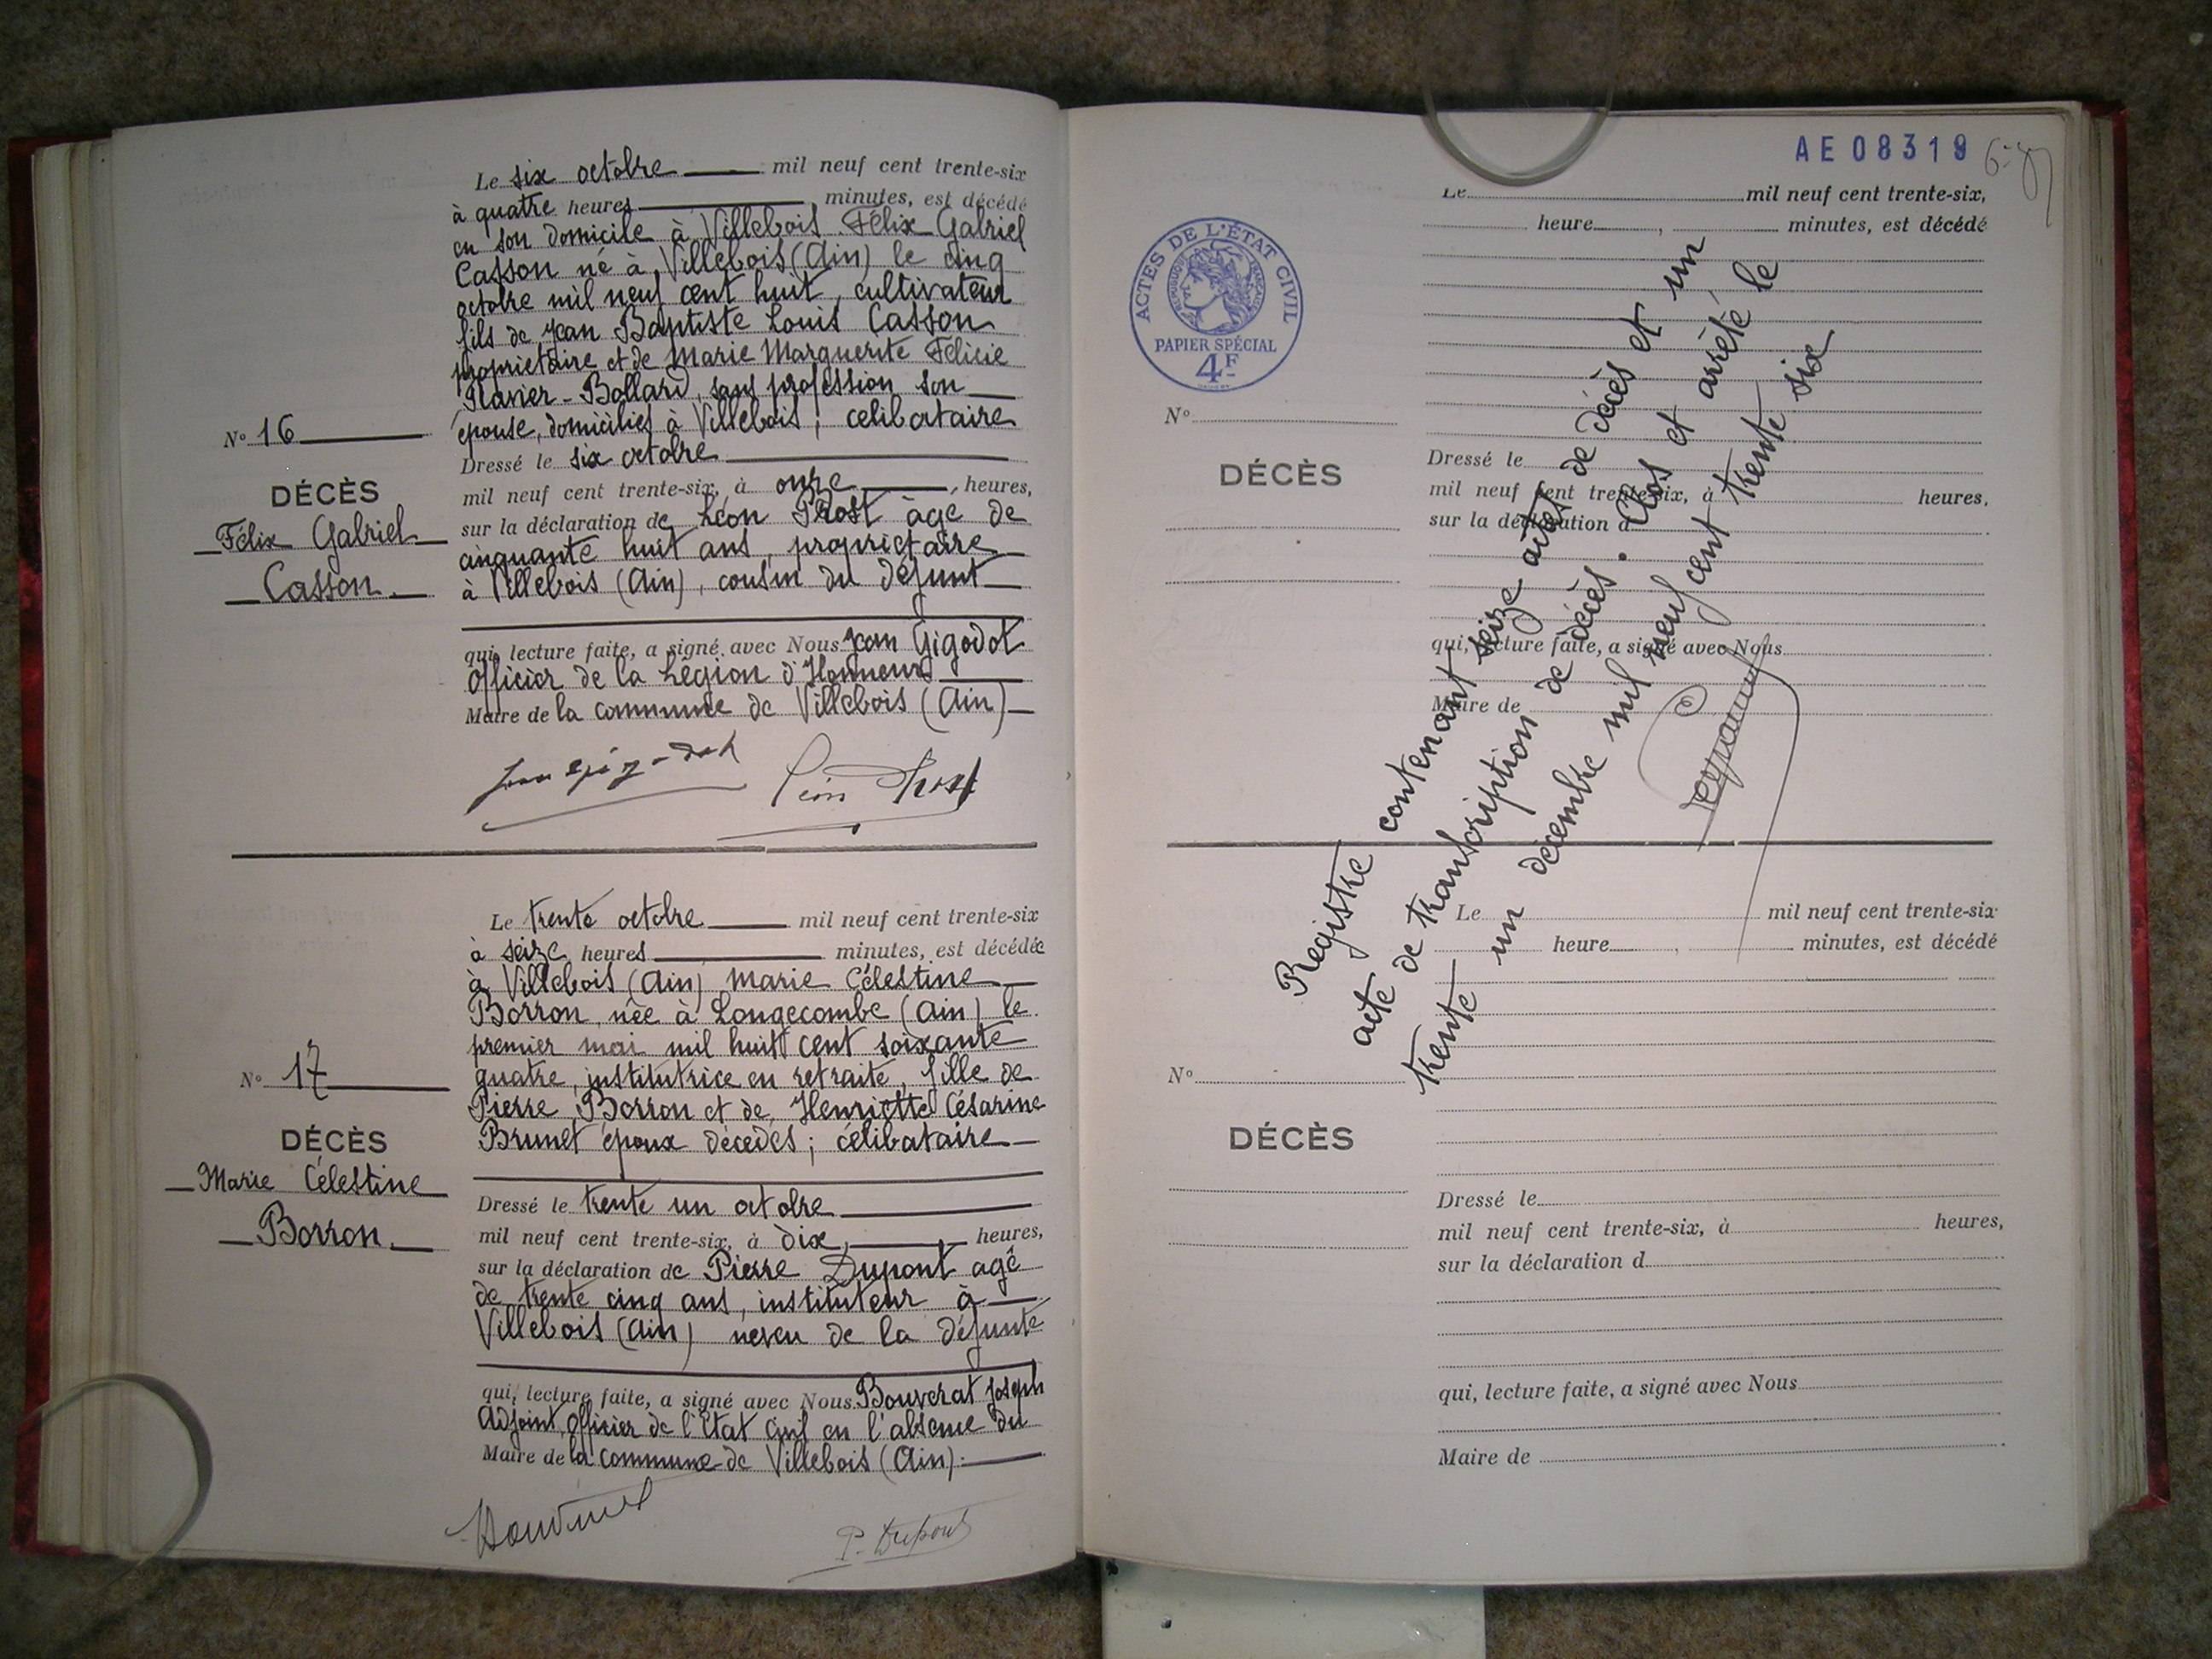 Le six octobre mil neuf cent trente-six
à quatre heures , minutes, est décédé
en son domicile à Villebois Félix Gabriel
Casson né à Villebois (Ain) le cinq
octobre mil neuf cent huit, cultivateur
fils de Jean Baptiste Louis Casson
propriétaire et de Marie Marguerite Félicie
Bollard, sans profession son
épouse, domiciliés à Villebois ; célibataire
N° 16
Dressé le six octobre
DÉCÈS
mil neuf cent trente-six, à onze , heures,
Félix Gabriel
sur la déclaration de Léon Prost âgé de
cinquante huit ans, propriétaire
Casson
à Villebois (Ain), cousin du défunt
qui, lecture faite, a signé avec Nous Jean Gigodot
Officier de la Légion d'Honneur
Maire de la commune de Villebois (Ain)
Léon Prost
Le trente octobre mil neuf cent trente-six
à seize heures minutes, est décédée
à Villebois (Ain) Marie Célestine
Borron, née à Longecombe (Ain) le
premier mai mil huit cent soixante
quatre, institutrice en retraite, fille de
N° 17
Pierre Borron et de Henriette Césarine
DÉCÈS
Brunet époux décédés ; célibataire
Marie Célestine
Dressé le trente un octobre
Borron
mil neuf cent trente-six, à dix , heures,
sur la déclaration de Pierre Dupont agé
de trente cinq ans, instituteur à
Villebois (Ain) neveu de la défunte
qui, lecture faite, a signé avec Nous Bouverat Joseph
Adjoint, Officier de l'Etat Civil en l'absence du
Maire de la commune de Villebois (Ain).
P. Dupont
AE 08319
Le mil neuf cent trente-six,
heure , minutes, est décédé
ACTES DE L'ÉTAT CIVIL
RÉPUBLIQUE FRANÇAISE
PAPIER SPÉCIAL
4F
N°
DÉCÈS
Dressé le
mil neuf cent trente-six, à heures,
sur la déclaration d
qui, lecture faite, a signé avec Nous
Maire de
Registre contenant seize actes de décès et un
acte de transcription de décès. Clos et arrêté le
trente un décembre mil neuf cent trente six
Le mil neuf cent trente-six
heure , minutes, est décédé
N°
DÉCÈS
Dressé le
mil neuf cent trente-six, à heures,
sur la déclaration d
qui, lecture faite, a signé avec Nous
Maire de